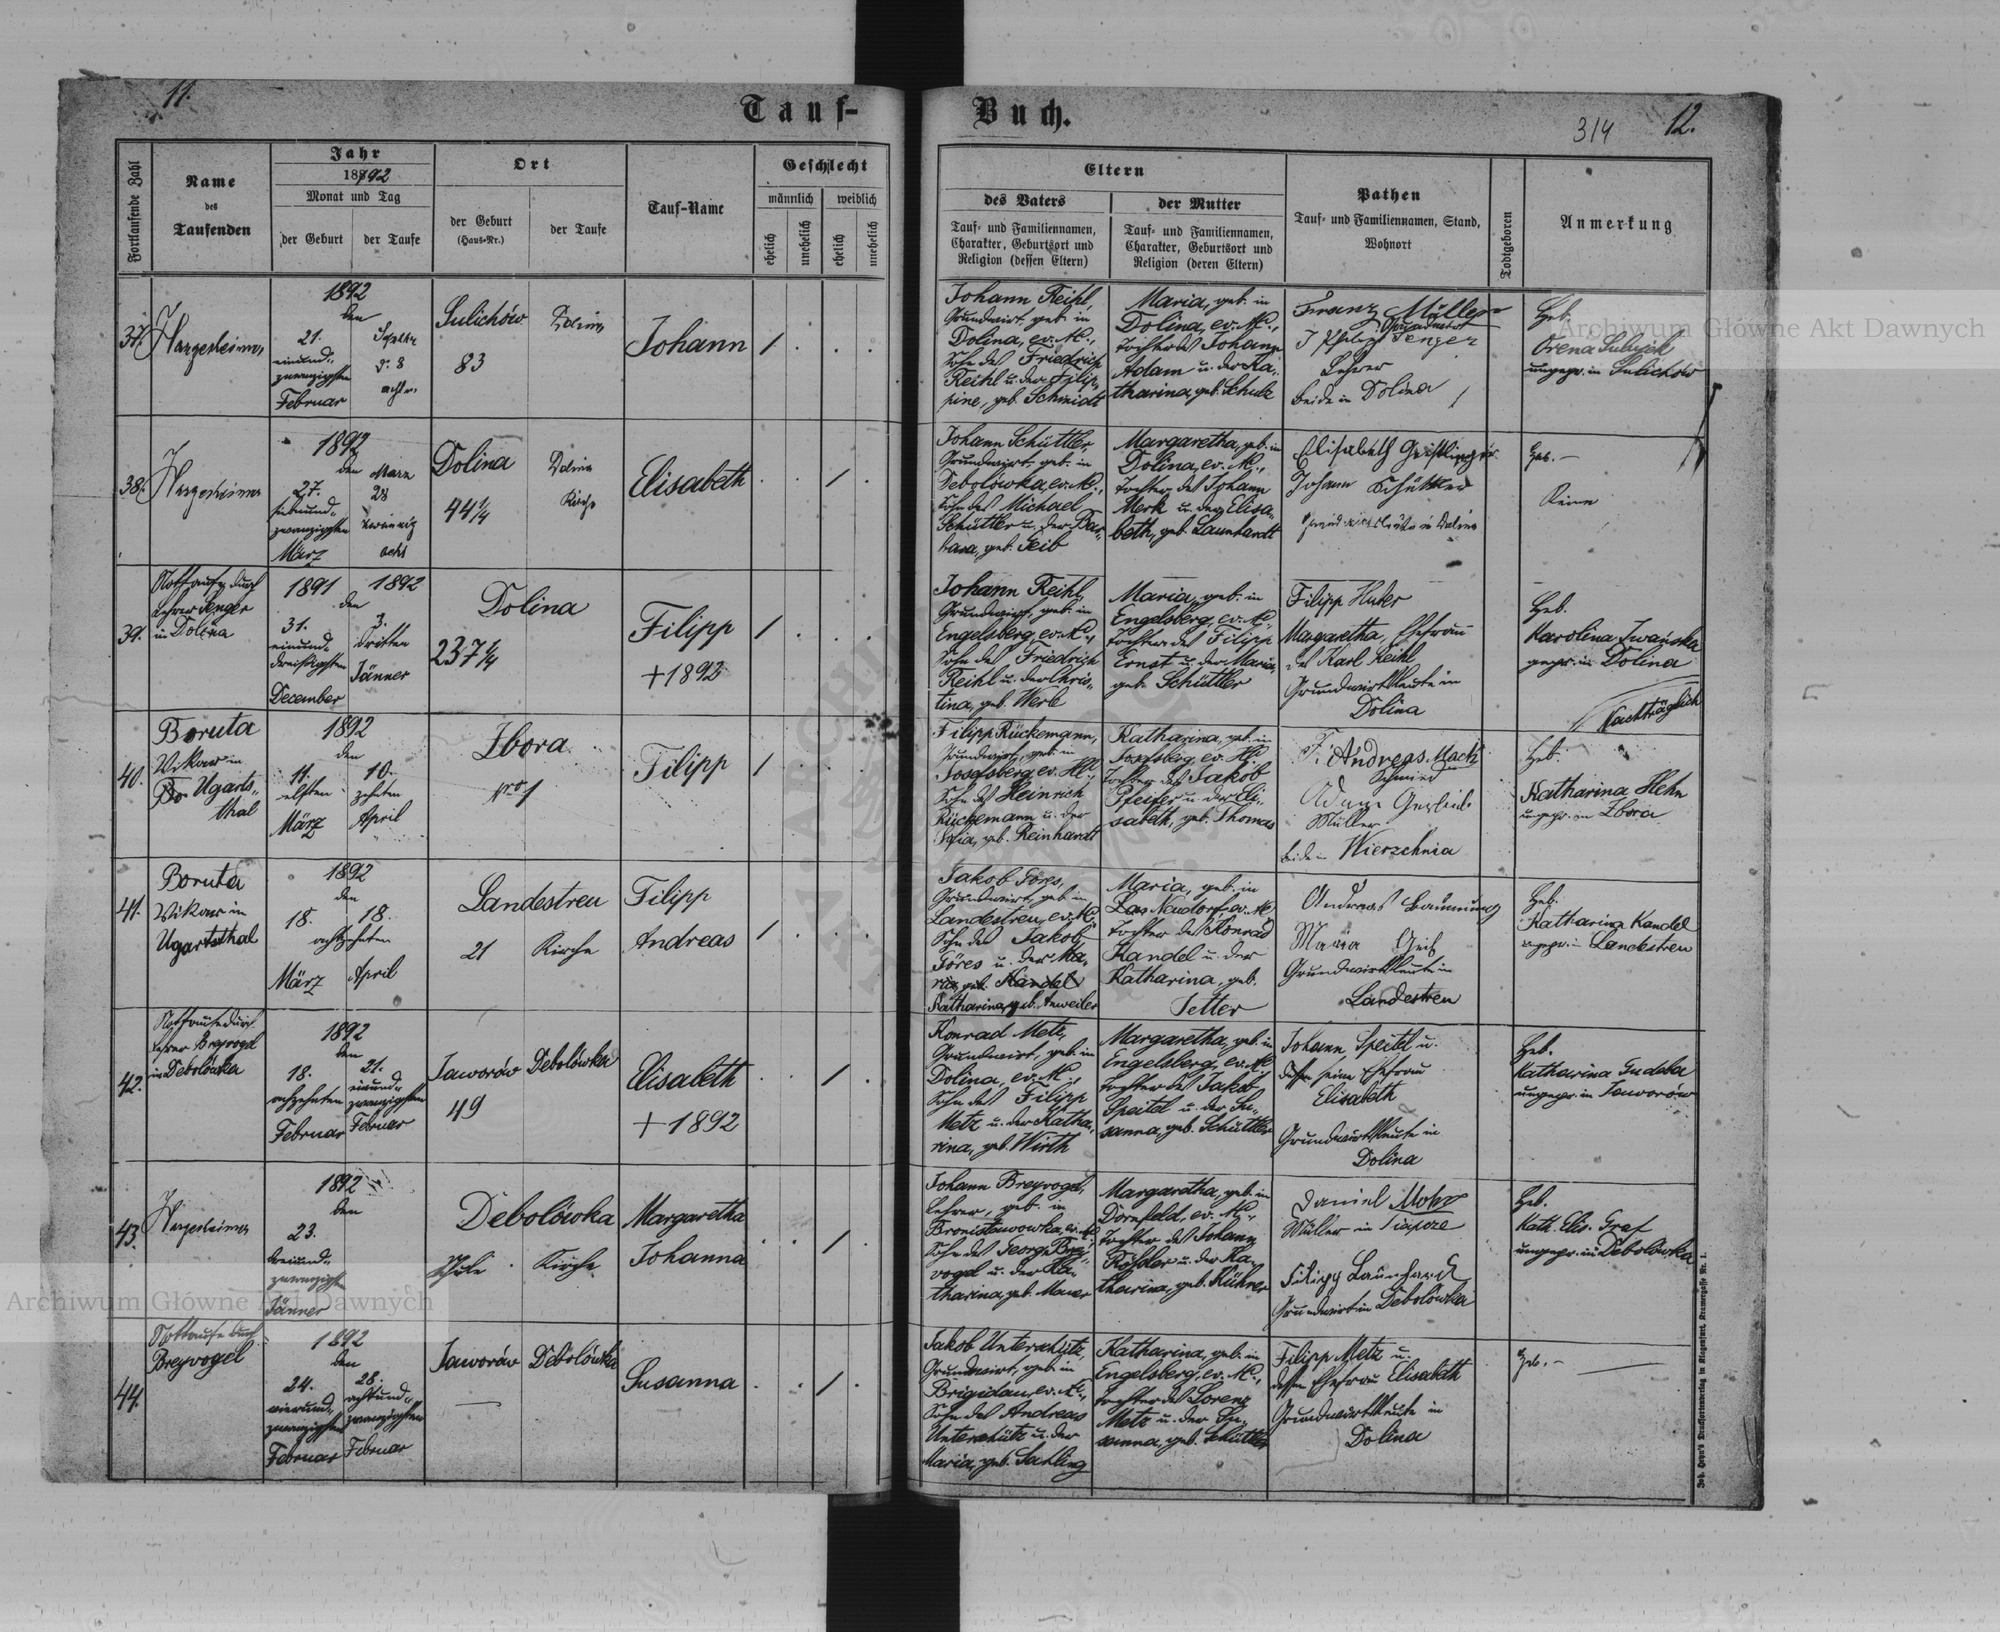 11.
Tauf-
Buch.
314
12.
Fortlaufende Zahl
Name
des
Taufenden
Jahr
1892
Monat und Tag
der Geburt
der Taufe
Ort
der Geburt
(Haus-Nr.)
der Taufe
Tauf-Name
Geschlecht
männlich
weiblich
ehelich
unehelich
ehelich
unehelich
Eltern
des Vaters
Tauf- und Familiennamen,
Charakter, Geburtsort und
Religion (dessen Eltern)
der Mutter
Tauf- und Familiennamen,
Charakter, Geburtsort und
Religion (deren Eltern)
Pathen
Tauf- und Familiennamen, Stand,
Wohnort
Todtgeboren
Anmerkung
37.
Hargesheimer
1892
den
21.
einund-
zwanzigsten
Februar
Sulichów
83
Dolina
Johann
/
Johann Reihl,
Grundwirt, geb. in
Dolina, ev. A.C.,
Sohn des Friedrich
Reihl u. der Filip-
pine, geb. Schmidt
Maria, geb. in
Dolina, ev. A.C.,
Tochter des Johann
Adam u. der Ka-
tharina, geb. Schulz
Franz Müller
Grundwirt
Filipp Senger
Lehrer
beide in Dolina
Heb.
Orena
ungepr. in Sulichów
38.
Hargesheimer
1892
den
27.
siebenund-
zwanzigsten
März
März
28
zwanzig
acht
Dolina
44 1/4
Dolina
Kirche
Elisabeth
/
Johann Schüttler,
Grundwirt, geb. in
Debolówka, ev. A.C.,
Sohn des Michael
Schüttler u. der Bar-
bara, geb. Seib
Margaretha, geb. in
Dolina, ev. A.C.,
Tochter des Johann
Merk u. der Elisa-
beth, geb. Launhardt
Elisabeth
Johann Schüttler
Grundwirtsleute in Dolina
Heb. —
Keine
39.
Nottaufe durch
Lehrer Senger
in Dolina
1891
1892
den
31.
einund-
dreißigsten
December
3.
dritten
Jänner
Dolina
237 1/4
Filipp
+ 1892
/
Johann Reihl,
Grundwirt, geb. in
Engelsberg, ev. A.C.,
Sohn des Friedrich
Reihl u. der Chris-
tina, geb. Werle
Maria, geb. in
Engelsberg, ev. A.C.,
Tochter des Filipp
Ernst u. der Maria,
geb. Schüttler
Filipp Huber
Margaretha, Ehefrau
des Karl Reihl
Grundwirtsleute in
Dolina
Heb.
Karolina Iwańska
gepr. in Dolina
Nachträglich
40.
Boruta
Vikar in
Ugarts-
thal
1892
den
11.
elften
März
10.
zehnten
April
Zbora
Nro 1
Filipp
/
Filipp Rückemann,
Grundwirt, geb. in
Josefsberg, ev. H.C.,
Sohn des Heinrich
Rückemann u. der
Sofia, geb. Reinhardt
Katharina, geb. in
Josefsberg, ev. H.C.,
Tochter des Jakob
Pfeifer u. der Eli-
sabeth, geb. Thomas
Andreas Mach
Schmied
Adam
Müller
beide in Wierzchnia
Heb.
Katharina Hehn
ungepr. in Zbora
41.
Boruta
Vikar in
Ugartsthal
1892
den
18.
18.
achtzehnten
März
April
Landestreu
21
Kirche
Filipp
Andreas
/
Jakob Föres,
Grundwirt, geb. in
Landestreu, ev. A.C.,
Sohn des Jakob
Föres u. der Ma-
ria, geb. Kandel
Katharina, geb. Anweiler
Maria, geb. in
Neudorf, ev. A.C.
Tochter des Konrad
Kandel u. der
Katharina, geb.
Jetter
Andreas
Maria
Grundwirtsleute in
Landestreu
Heb.
Katharina Kandel
ungepr. in Landestreu
42.
Nottaufe durch
Lehrer Breyvogel
in Debolówka
1892
den
18.
achzehnten
Februar
21.
einund-
zwanzigsten
Februar
Jaworów
49
Debolówka
Elisabeth
+ 1892
/
Konrad Metz,
Grundwirt, geb. in
Dolina, ev. A.C.,
Sohn des Filipp
Metz u. der Katha-
rina, geb. Wirth
Margaretha, geb. in
Engelsberg, ev. A.C.
Tochter des Jakob
Speitel u. der Su-
sanna, geb. Schüttler
Johann Speitel u.
dessen seine Ehefrau
Elisabeth
Grundwirtsleute in
Dolina
Heb.
Katharina Gudeba
ungepr. in Jaworów
43.
Hargesheimer
1892
den
23.
dreiund-
zwanzigsten
Jänner
Debolówka
Schule
Kirche
Margaretha
Johanna
/
Johann Breyvogel,
Lehrer, geb. in
Bronislawowka, ev. A.C.
Sohn des Georg Brey-
vogel u. der Ka-
tharina, geb. Mauer
Margaretha, geb. in
Dornfeld, ev. A.C.,
Tochter des Johann
Röhler u. der Ka-
tharina, geb. Kühner
Daniel Mohr
Müller in
Filipp Launhardt
Grundwirt in Debolówka
Heb.
Kath. Elis. Graf
ungepr. in Debolówka
44.
Nottaufe durch
Breyvogel
1892
den
24.
vierund-
zwanzigsten
Februar
28.
achtund-
zwanzigsten
Februar
Jaworów
—
Debolówka
Susanna
/
Jakob Unterschütz,
Grundwirt, geb. in
Brigidau, ev. A.C.,
Sohn des Andreas
Unterschütz u. der
Maria, geb. Sahling
Katharina, geb. in
Engelsberg, ev. A.C.,
Tochter des Lorenz
Metz u. der Su-
sanna, geb. Schüttler
Filipp Metz u.
dessen Ehefrau Elisabeth
Grundwirtsleute in
Dolina
Heb. —
Archiwum Główne Akt Dawnych
Archiwum Główne Akt Dawnych